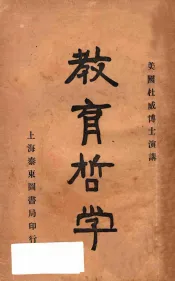 美國杜威博士演講
教育哲学
上海泰東圖書局印行